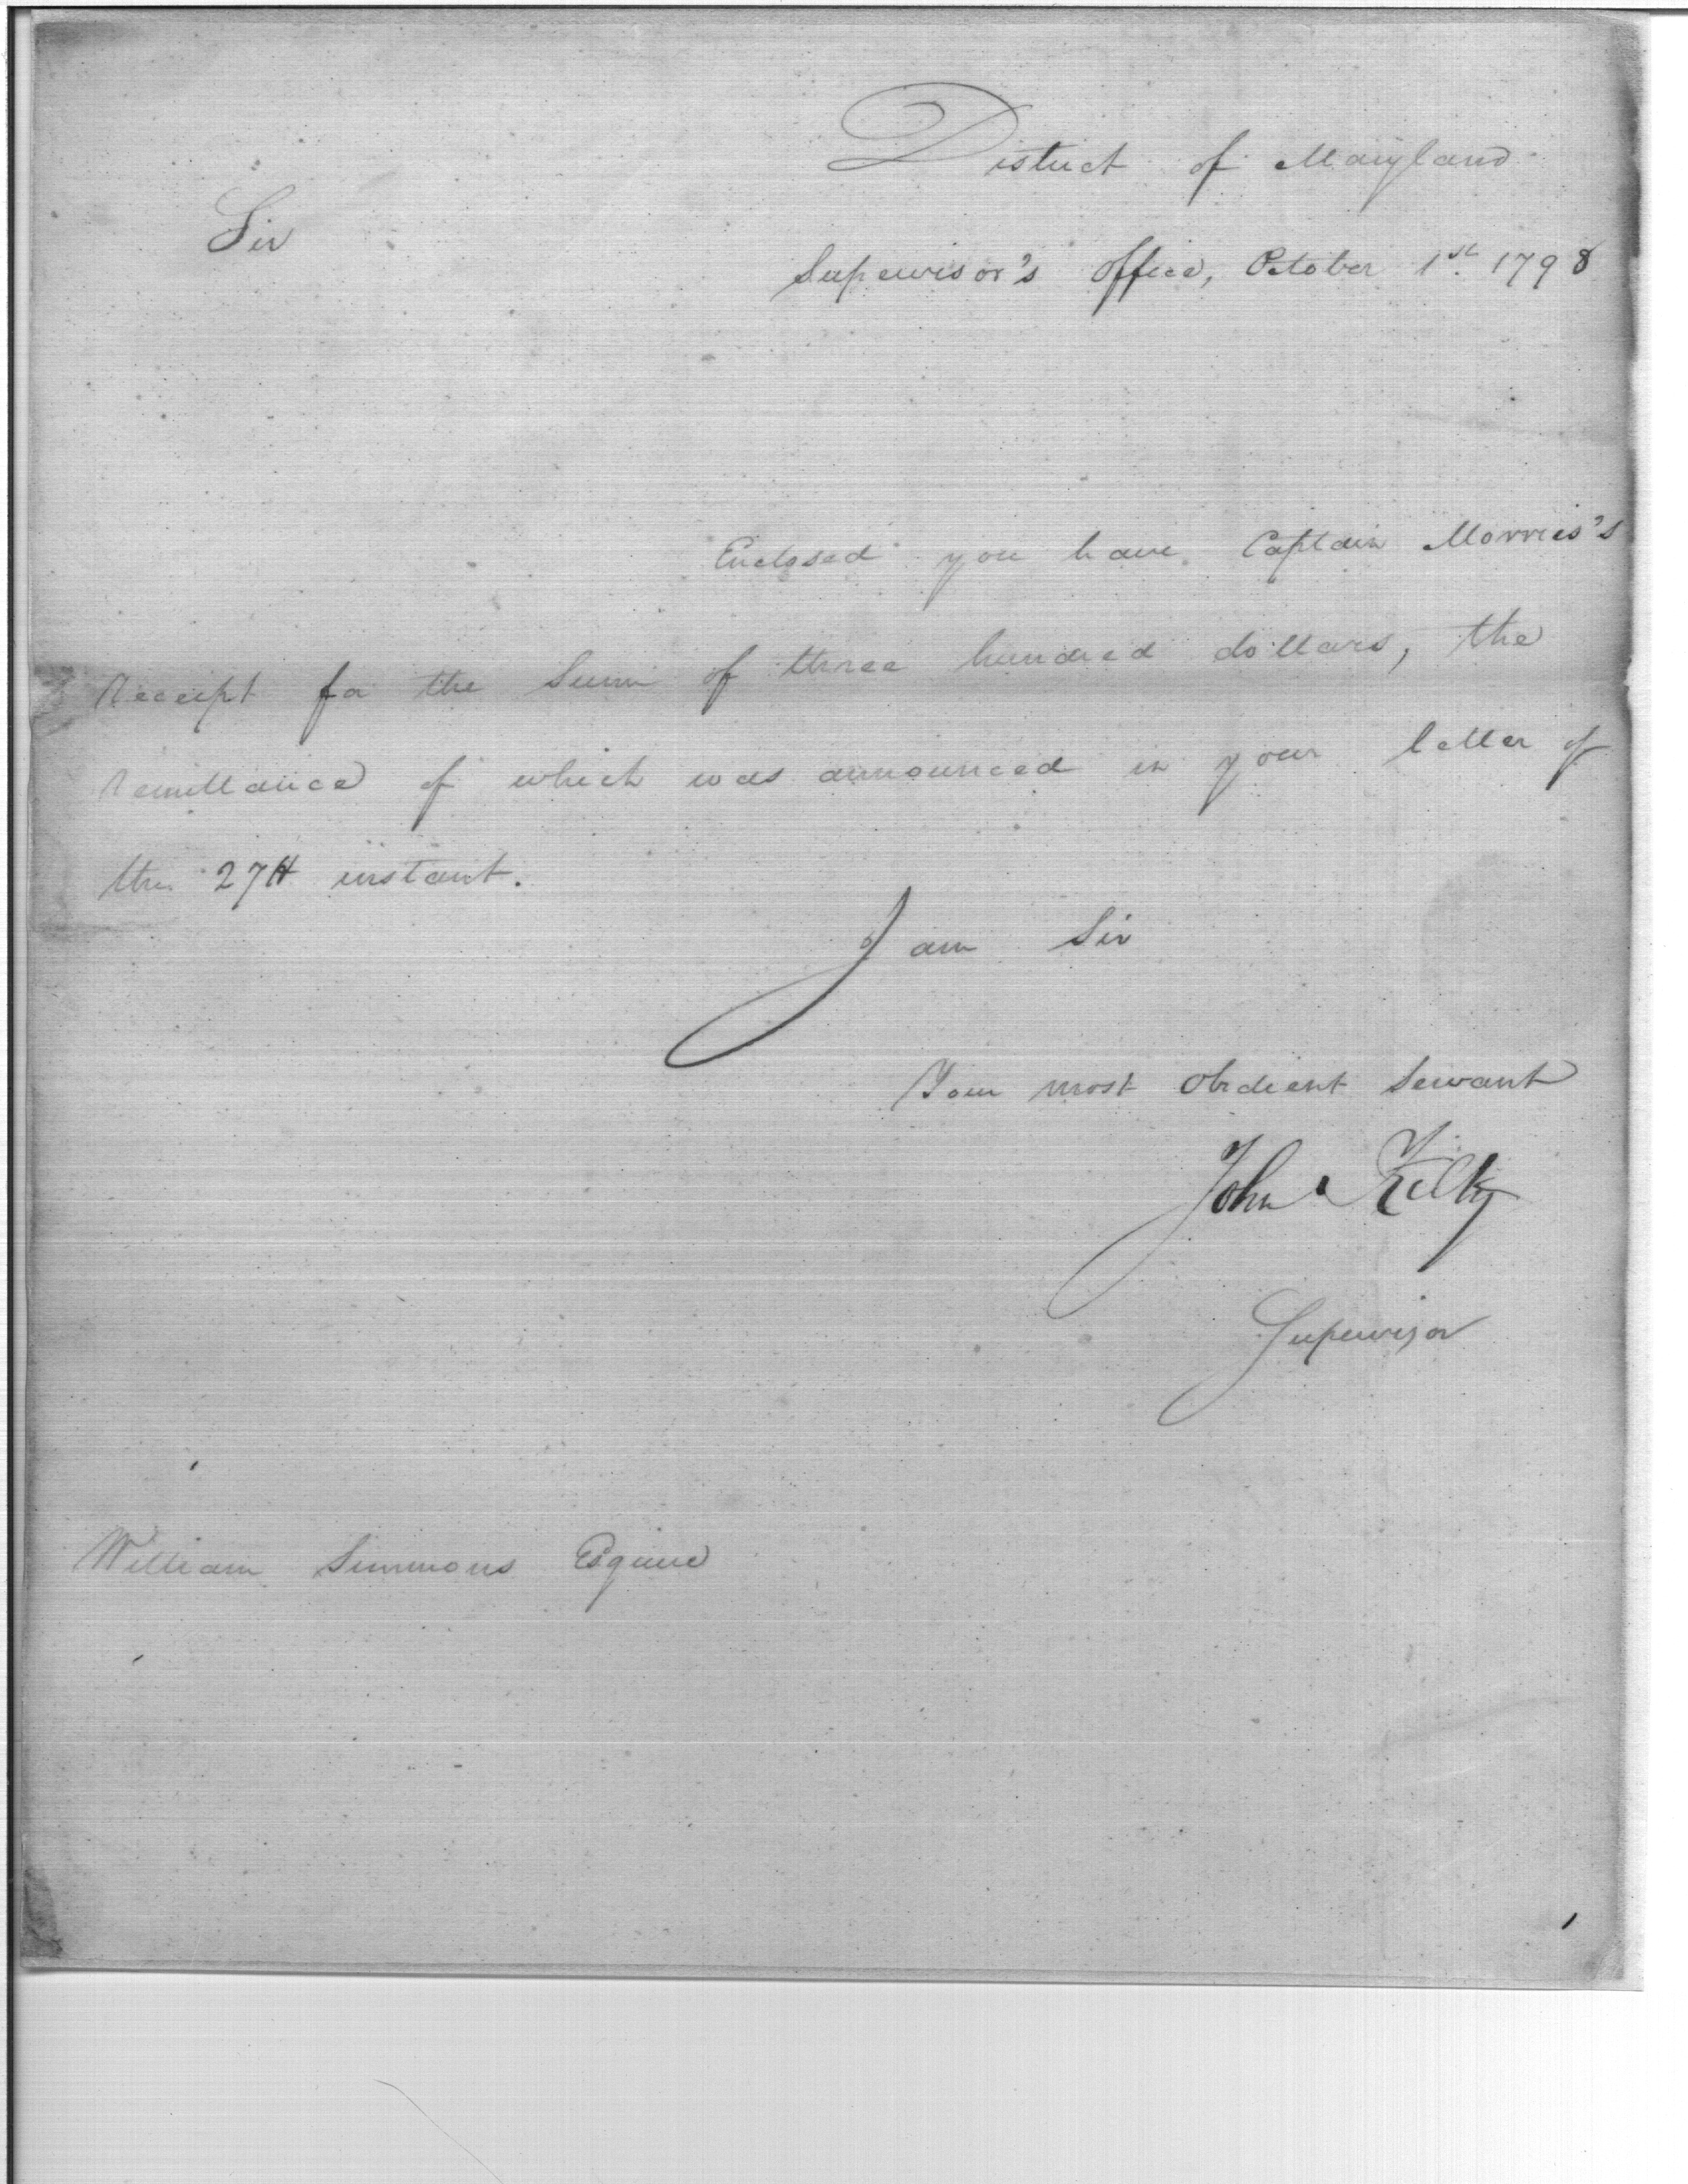 District of Maryland
Sir
Supervisor's office, October 1st. 1798
Enclosed you have Captain Morris's
Receipt for the Sum of three hundred dollars, the
Remittance of which was announced in your letter of
the 27th instant.
I am Sir
Your most obedient Servant
John Kilty
Supervisor
William Simmons Esquire